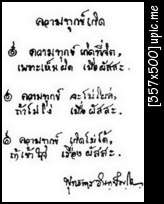 ความทุกข์เกิด
ความทุกข์ เกิดที่จิต
เพราะเห็นผิด เมื่อผัสสะ.
ความทุกข์ จะไม่โผล่
ถ้าไม่โง่ เมื่อผัสสะ.
ความทุกข์ เกิดไม่ได้
ถ้าเข้าใจ เรื่อง ผัสสะ.
พุทธทาส อินทปัญโญ
[357x500] upic.me